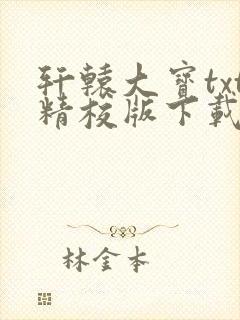 轩辕大宝txt
精校版下载
林金本